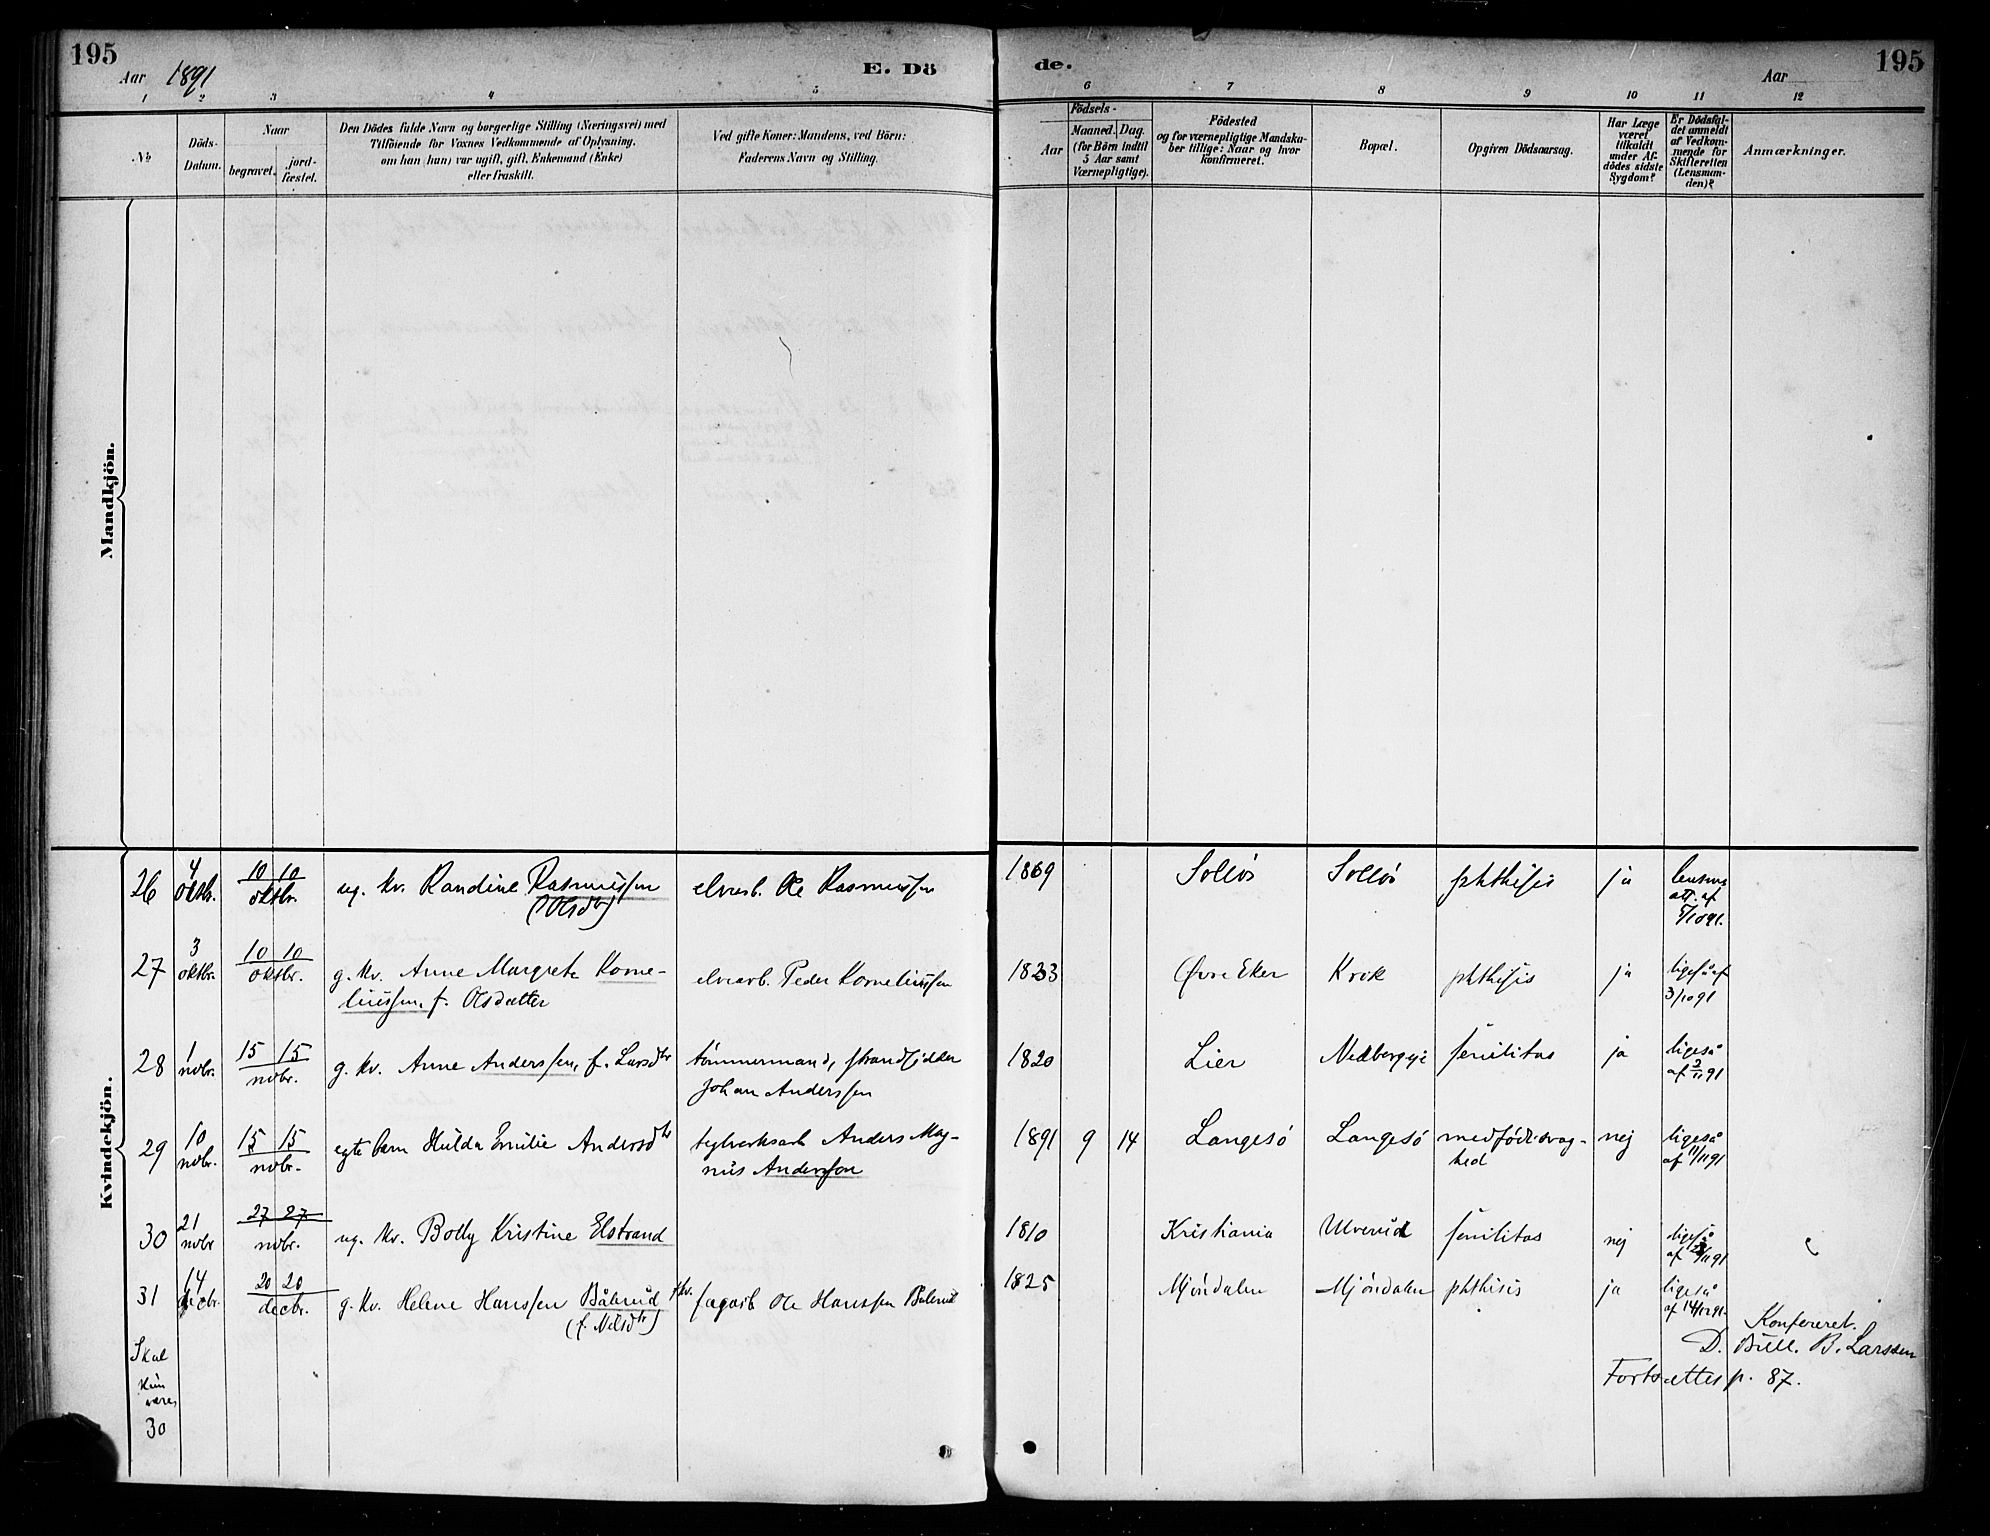 195
Aar 1891
E. Dö
de.
Aar
195
1 2 3 4 5
6 7 8 9 10 11 12
No
Döds-Datum.
Naar
begravet.
jord-fæstet.
Den Dödes fulde Navn og borgerlige Stilling (Næringsvei) med
Tilföiende for Voxnes Vedkommende af Oplysning,
om han (hun) var ugift, gift, Enkemand (Enke)
eller fraskilt.
Ved gifte Koner: Mandens, ved Börn:
Faderens Navn og Stilling.
Födsels-
Aar
Maaned. Dag.
(for Börn indtil
5 Aar samt
Værnepligtige).
Födested
og for værnepligtige Mandska-
ber tillige: Naar og hvor
konfirmeret.
Bopæl.
Opgiven Dödsaarsag.
Har Læge
været
tilkaldt
under Af-
dödes sidste
Sygdom?
Er Dödsfal-
det anmeldt
af Vedkom-
mende for
Skifteretten
(Lensman-
den)?
Anmærkninger.
Mandkjön.
Kvindekjön.
26 4 oktbr. 10 10 oktbr. ug. kv. Randine Rasmussen elvarb. Ole Rasmussen 1869 Solløs Solløs phthisis ja lensm.
(Olsdtr) att. af
5/10 91.
27 3 oktbr. 10 10 oktbr. g. kv. Anne Margrete Korne- elvearb. Peder Korneliussen 1833 Øvre Eker Krok phthisis ja ligeså af
liussen, f. Olsdatter 3/10 91
28 1 nvbr. 15 15 nvbr. g. kv. Anne Anderssen, f. Larsdtr tömmermand, strandsidder 1820 Lier senilitas ja ligeså
Johan Anderssen af 3/11 91
29 10 nvbr. 15 15 nvbr. egte barn Hulda Emilie Andersdtr teglverksarb Anders Mag- 1891 9 14 Langesö Langesö medföd. svag- nej ligeså
nus Anderssen hed af 11/11 91
30 21 nvbr 27 27 nvbr. ug. kv. Bolly Kristine Elstrand 1810 Kristiania Ulverud senilitas nej ligeså
af /11 91
31 14 decbr. 20 20 decbr. g. kv. Helene Hanssen Bålerud fkv. fagarb Ole Hanssen Bålerud 1825 Mjöndalen Mjöndalen phthisis ja ligeså
(f. Nilsdtr) af 14/12 91.
Skal
kun
være
30
Konfereret.
D. Bull. B. Larssen
Fortsættes p. 87.